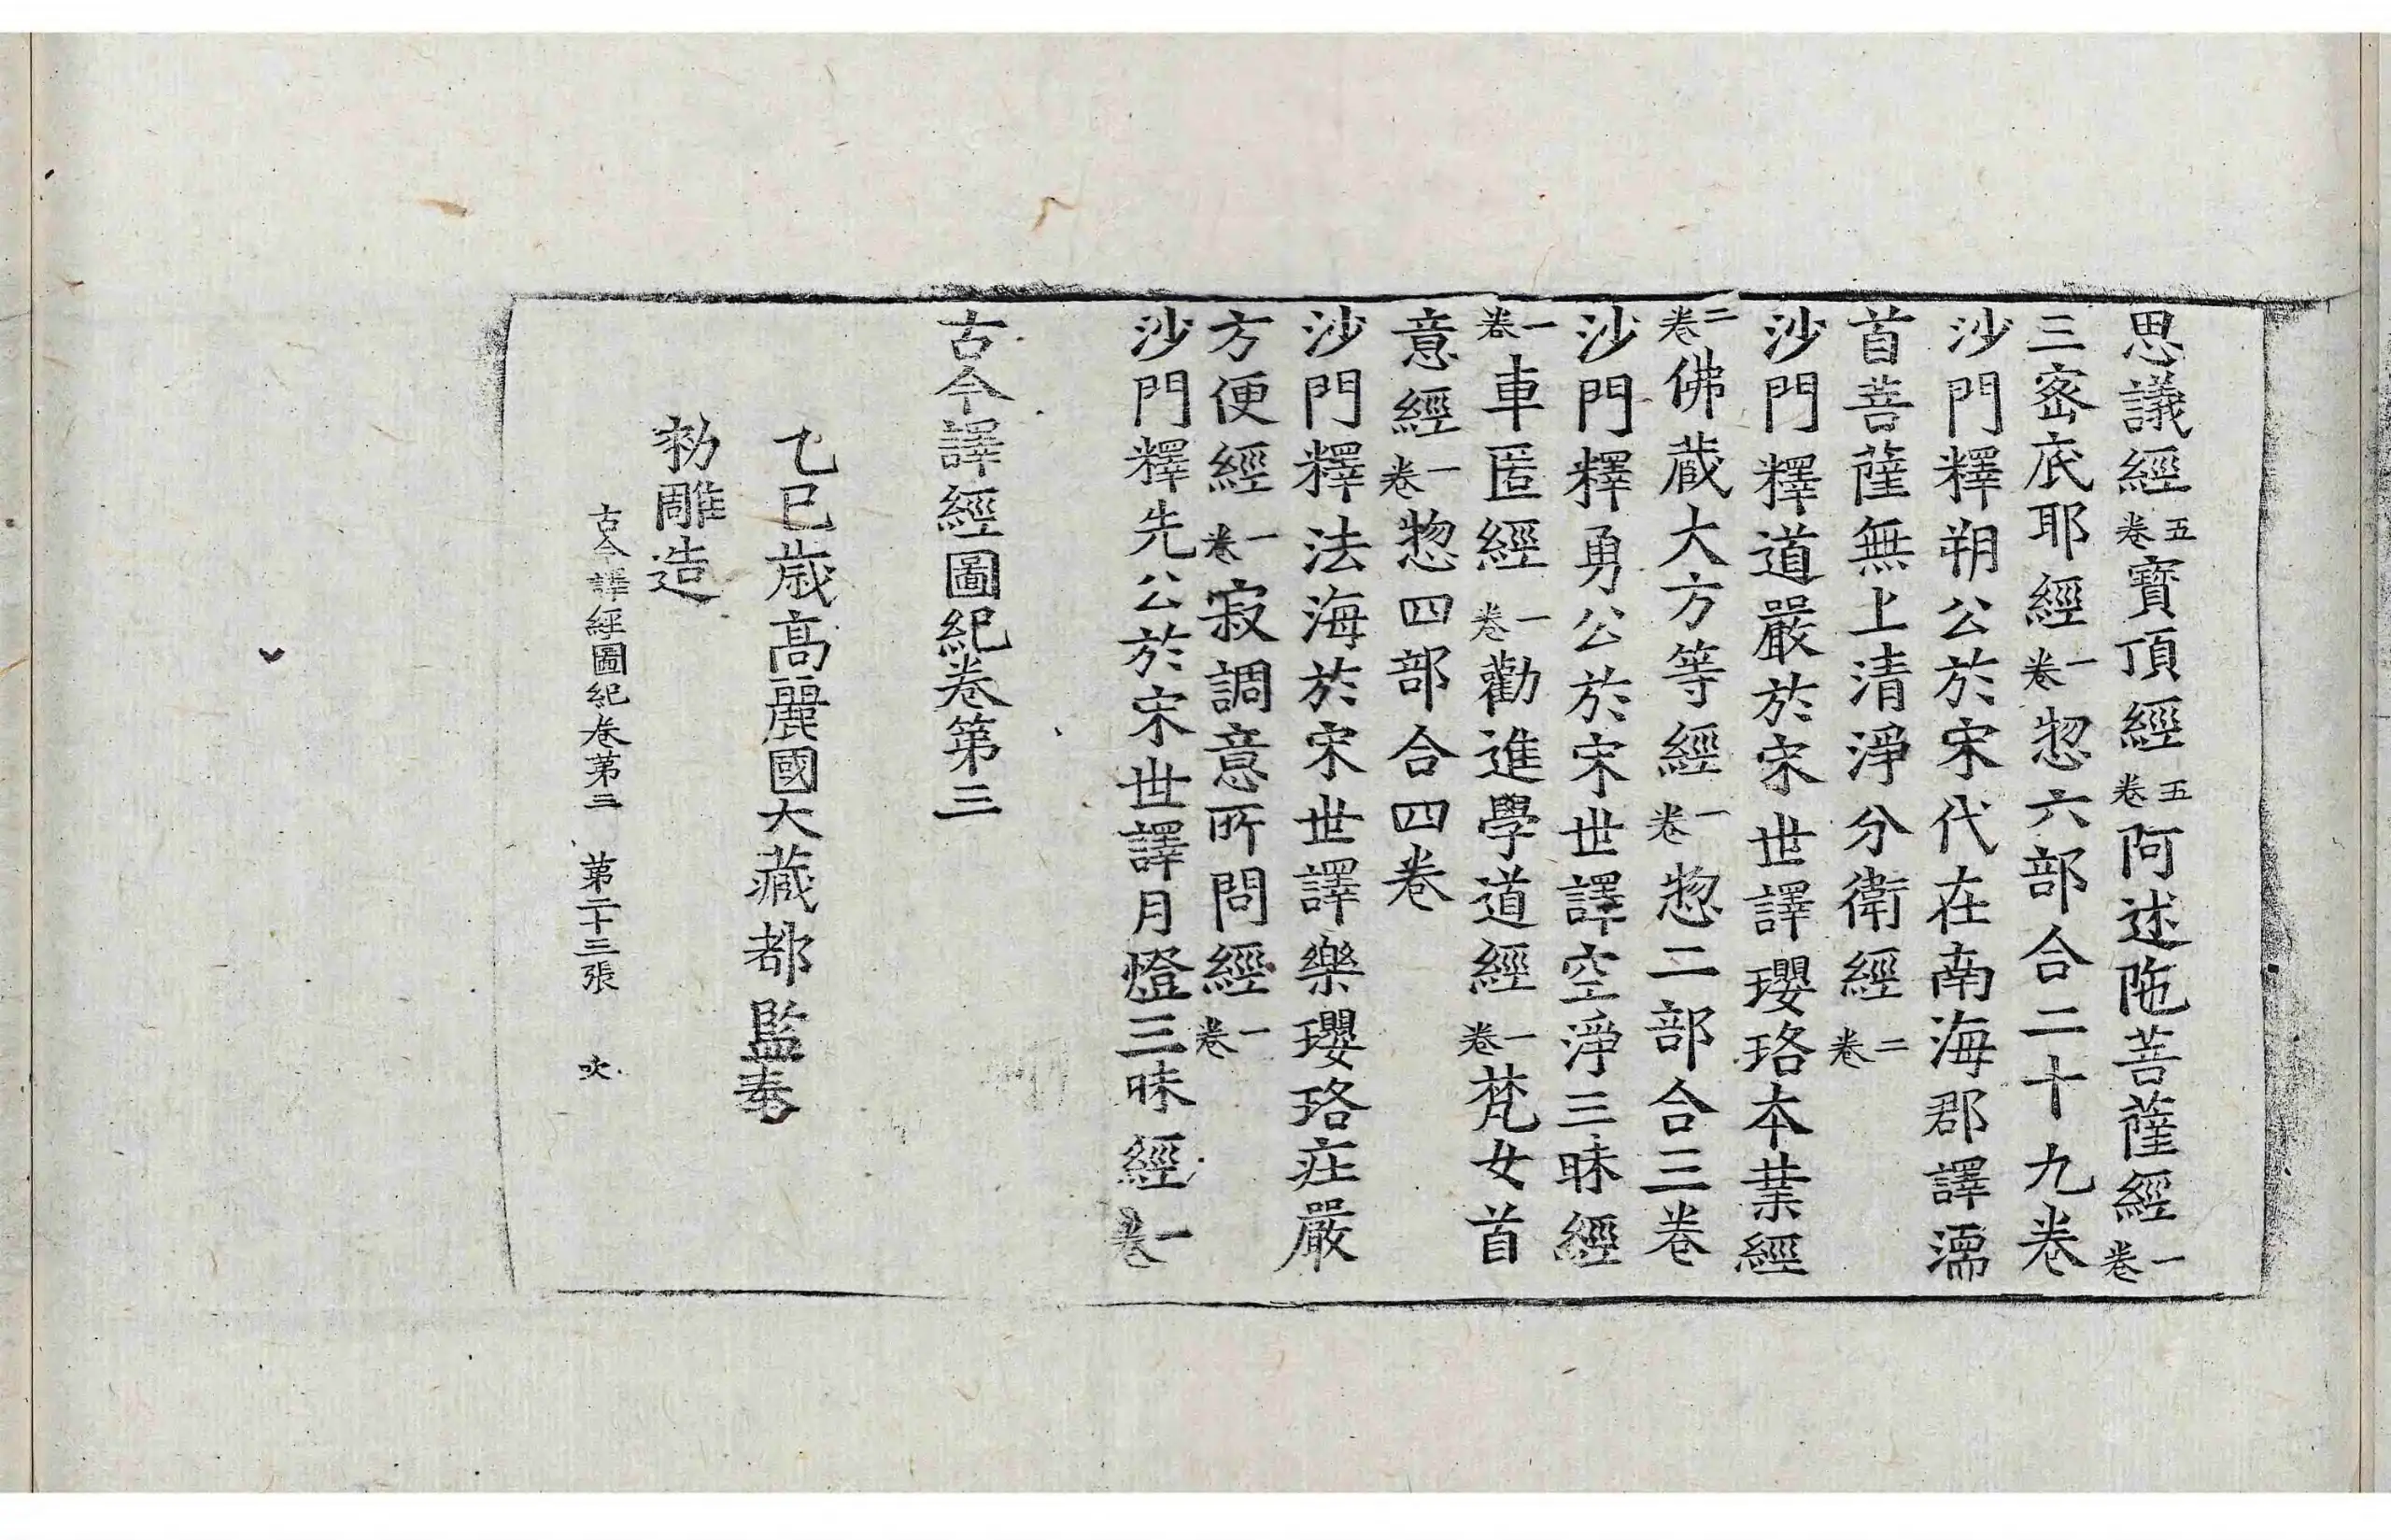 思議經五卷寶頂經五卷阿述陁菩薩經一卷
三宻底耶經一卷惣六部合二十九卷
沙門釋朔公於宋代在南海郡譯濡
首菩薩無上清淨分衛經二卷
沙門釋道嚴於宋世譯瓔珞本葉經
二卷佛蔵大方等經一卷惣二部合三卷
沙門釋勇公於宋世譯空淨三昧經
一卷車匿經一卷勸進學道經一卷梵女首
意經一卷惣四部合四卷
沙門釋法海於宋世譯樂瓔珞莊嚴
方便經一卷寂調意所問經一卷
沙門釋先公於宋世譯月燈三昧經一卷
古今譯經圖紀卷第三
乙巳歲高麗國大藏都監奉
勑雕造
古今譯經圖紀卷第三 第二十三張 吹